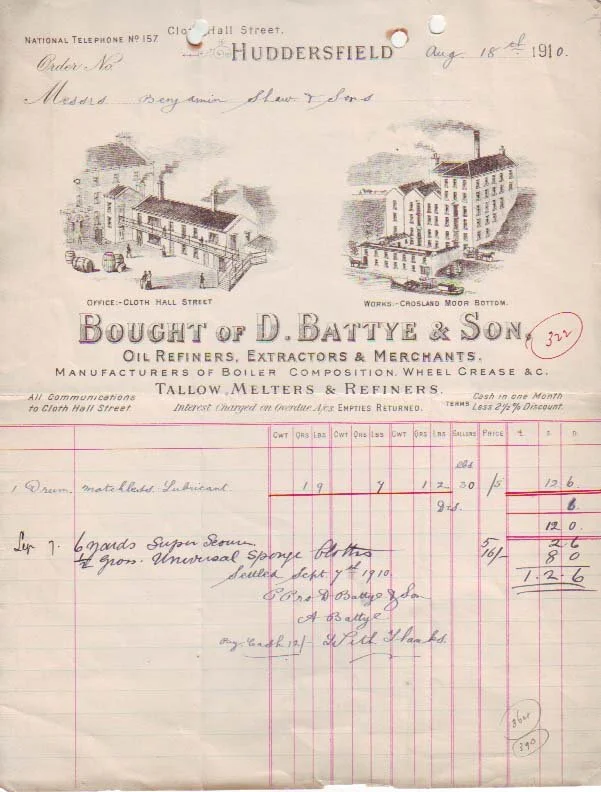 Cloth Hall Street.
NATIONAL TELEPHONE Nº 157.
HUDDERSFIELD Aug 18th 1910.
Order No
Messrs Benjamin Shaw & Sons
OFFICE:- CLOTH HALL STREET
WORKS:- CROSLAND MOOR BOTTOM.
BOUGHT OF D. BATTYE & SON,
322
OIL REFINERS, EXTRACTORS & MERCHANTS.
MANUFACTURERS OF BOILER COMPOSITION, WHEEL GREASE &C.
TALLOW MELTERS & REFINERS.
All Communications to Cloth Hall Street
Interest Charged on Overdue A/cs EMPTIES RETURNED.
TERMS Cash in one Month Less 2½% Discount.
CWT QRS LBS CWT QRS LBS CWT QRS LBS GALLONS PRICE £ S. D.
lbs
1 Drum Matchless Lubricant 1 9 7 1 2 30 /5 12 6
Dis. 6
12 0
Sep 7. 6 yards Super Scour 5 2 6
½ Gross Universal Sponge Cloths 16/- 8 0
Settled Sept 7th 1910. 1. 2. 6
P Pro D Battye & Son
A Battye
Pay. Cash 12/- With Thanks.
390